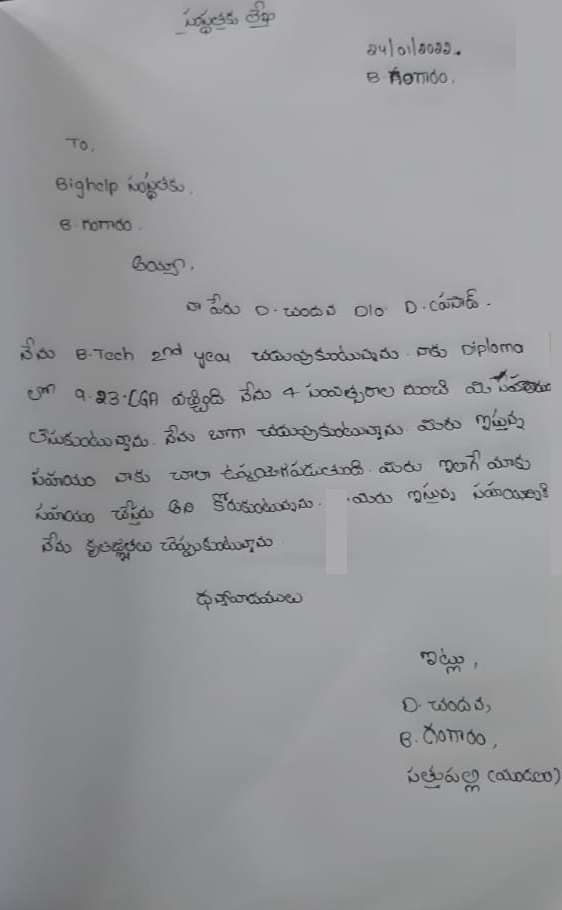 సంస్థతకు లేఖ
24/01/2022.
B. గంగారం.
To,
Bighelp సంస్థతకు,
B. గంగారం.
అయ్యా,
నా పేరు D. చందన D/o. D. ప్రసాద్.
నేను B.Tech 2nd year చదువుకుంటున్నాను. నాకు Diploma
లో 9.23.CGA వచ్చింది నేను 4 సంవత్సరాల నుంచి మీ సహాయం
తీసుకుంటున్నాను. నేను బాగా చదువుకుంటున్నాను. మీరు ఇస్తున్న
సహాయం నాకు చాలా ఉపయోగపడుతుంది. మీరు ఇలాగే మాకు
సహాయం చేస్తారు అని కోరుకుంటున్నాను. మీరు ఇస్తున్న సహాయానికి
నేను కృతజ్ఞతలు చెప్పుకుంటున్నాను
ధన్యవాదములు
ఇట్లు,
D. చందన,
B. గంగారం,
సత్తుపల్లి (మండలం)